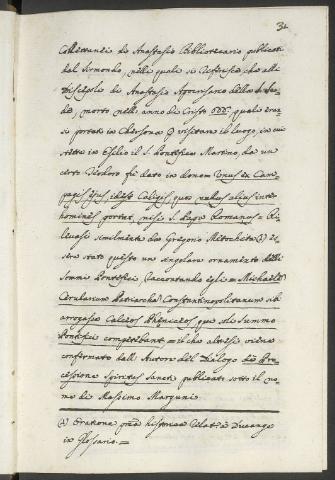 31
Collettanei di Anastasio Bibliotecario publicati
dal Sirmondo, nelli quali si riferisce, che alli
Discepoli di Anastasio Apocrisario della S. Sede,
morto nelli anno di Cristo 666. quali eransi
portati in Chersona p visitare il luogo, in cui
stette in Esilio il S. Pontefice Martino, da un
certo Teodoro fu dato in donum Unus ex Campagis
ejus, idest Caligis, quos nullus alius inter
homines portat, nisi S. Papa Romanus = Rilevasi
similmente da Gregorio Metochita (a) essere
stato questo un singolare ornamento delli
Sommi Pontefici raccontando egli = Michaelem
Cerularium Patriarcha Constantinopolitanum sibi
arrogasse Calceos Phæniceos, que soli Summo
Pontifici competebant = il che altresì viene
confermato dall' Autore del Dialogo de Processione
Spiritus Sancti publicati sotto il nome
di Massimo Margunio.
(a) Oratione pma historiae Relat. a Ducange
in Glossario. =